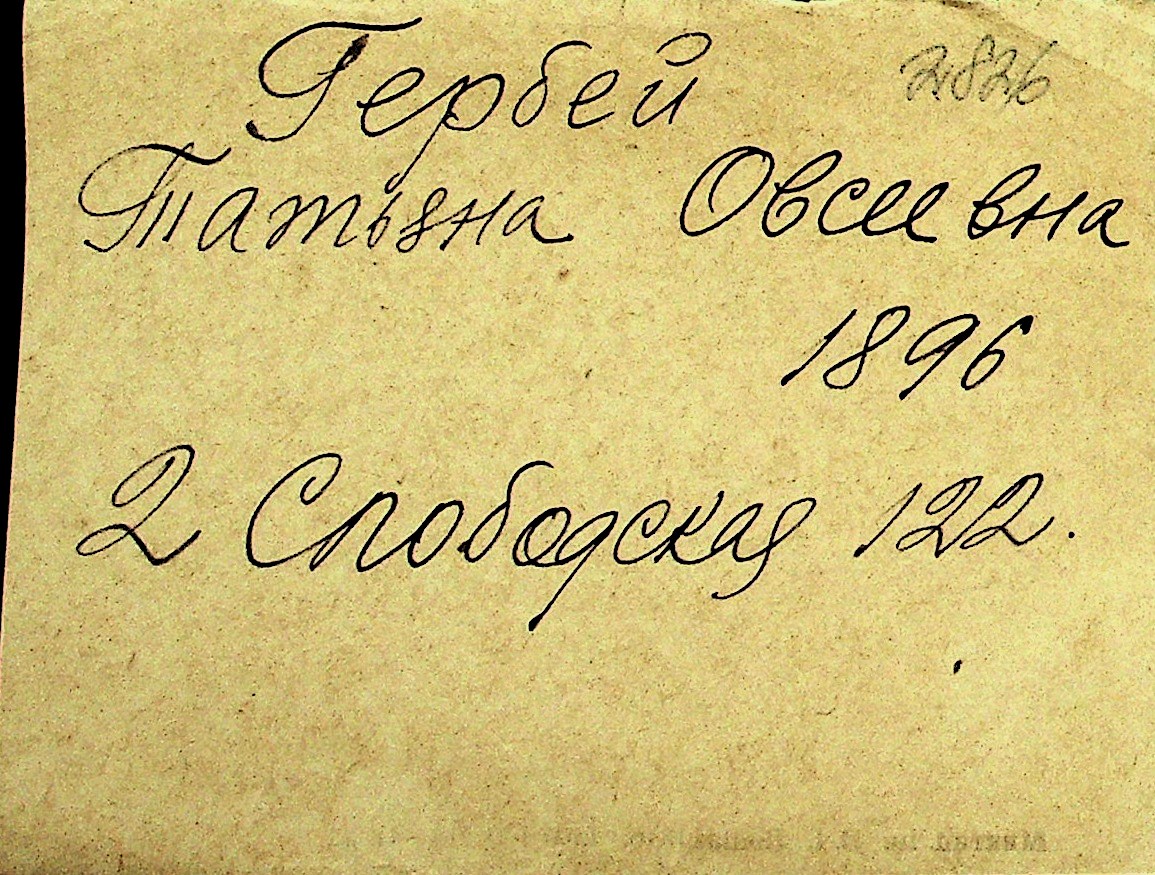 Гербей 2826
Татьяна Овсиевна
1896
2 Слободская 122.